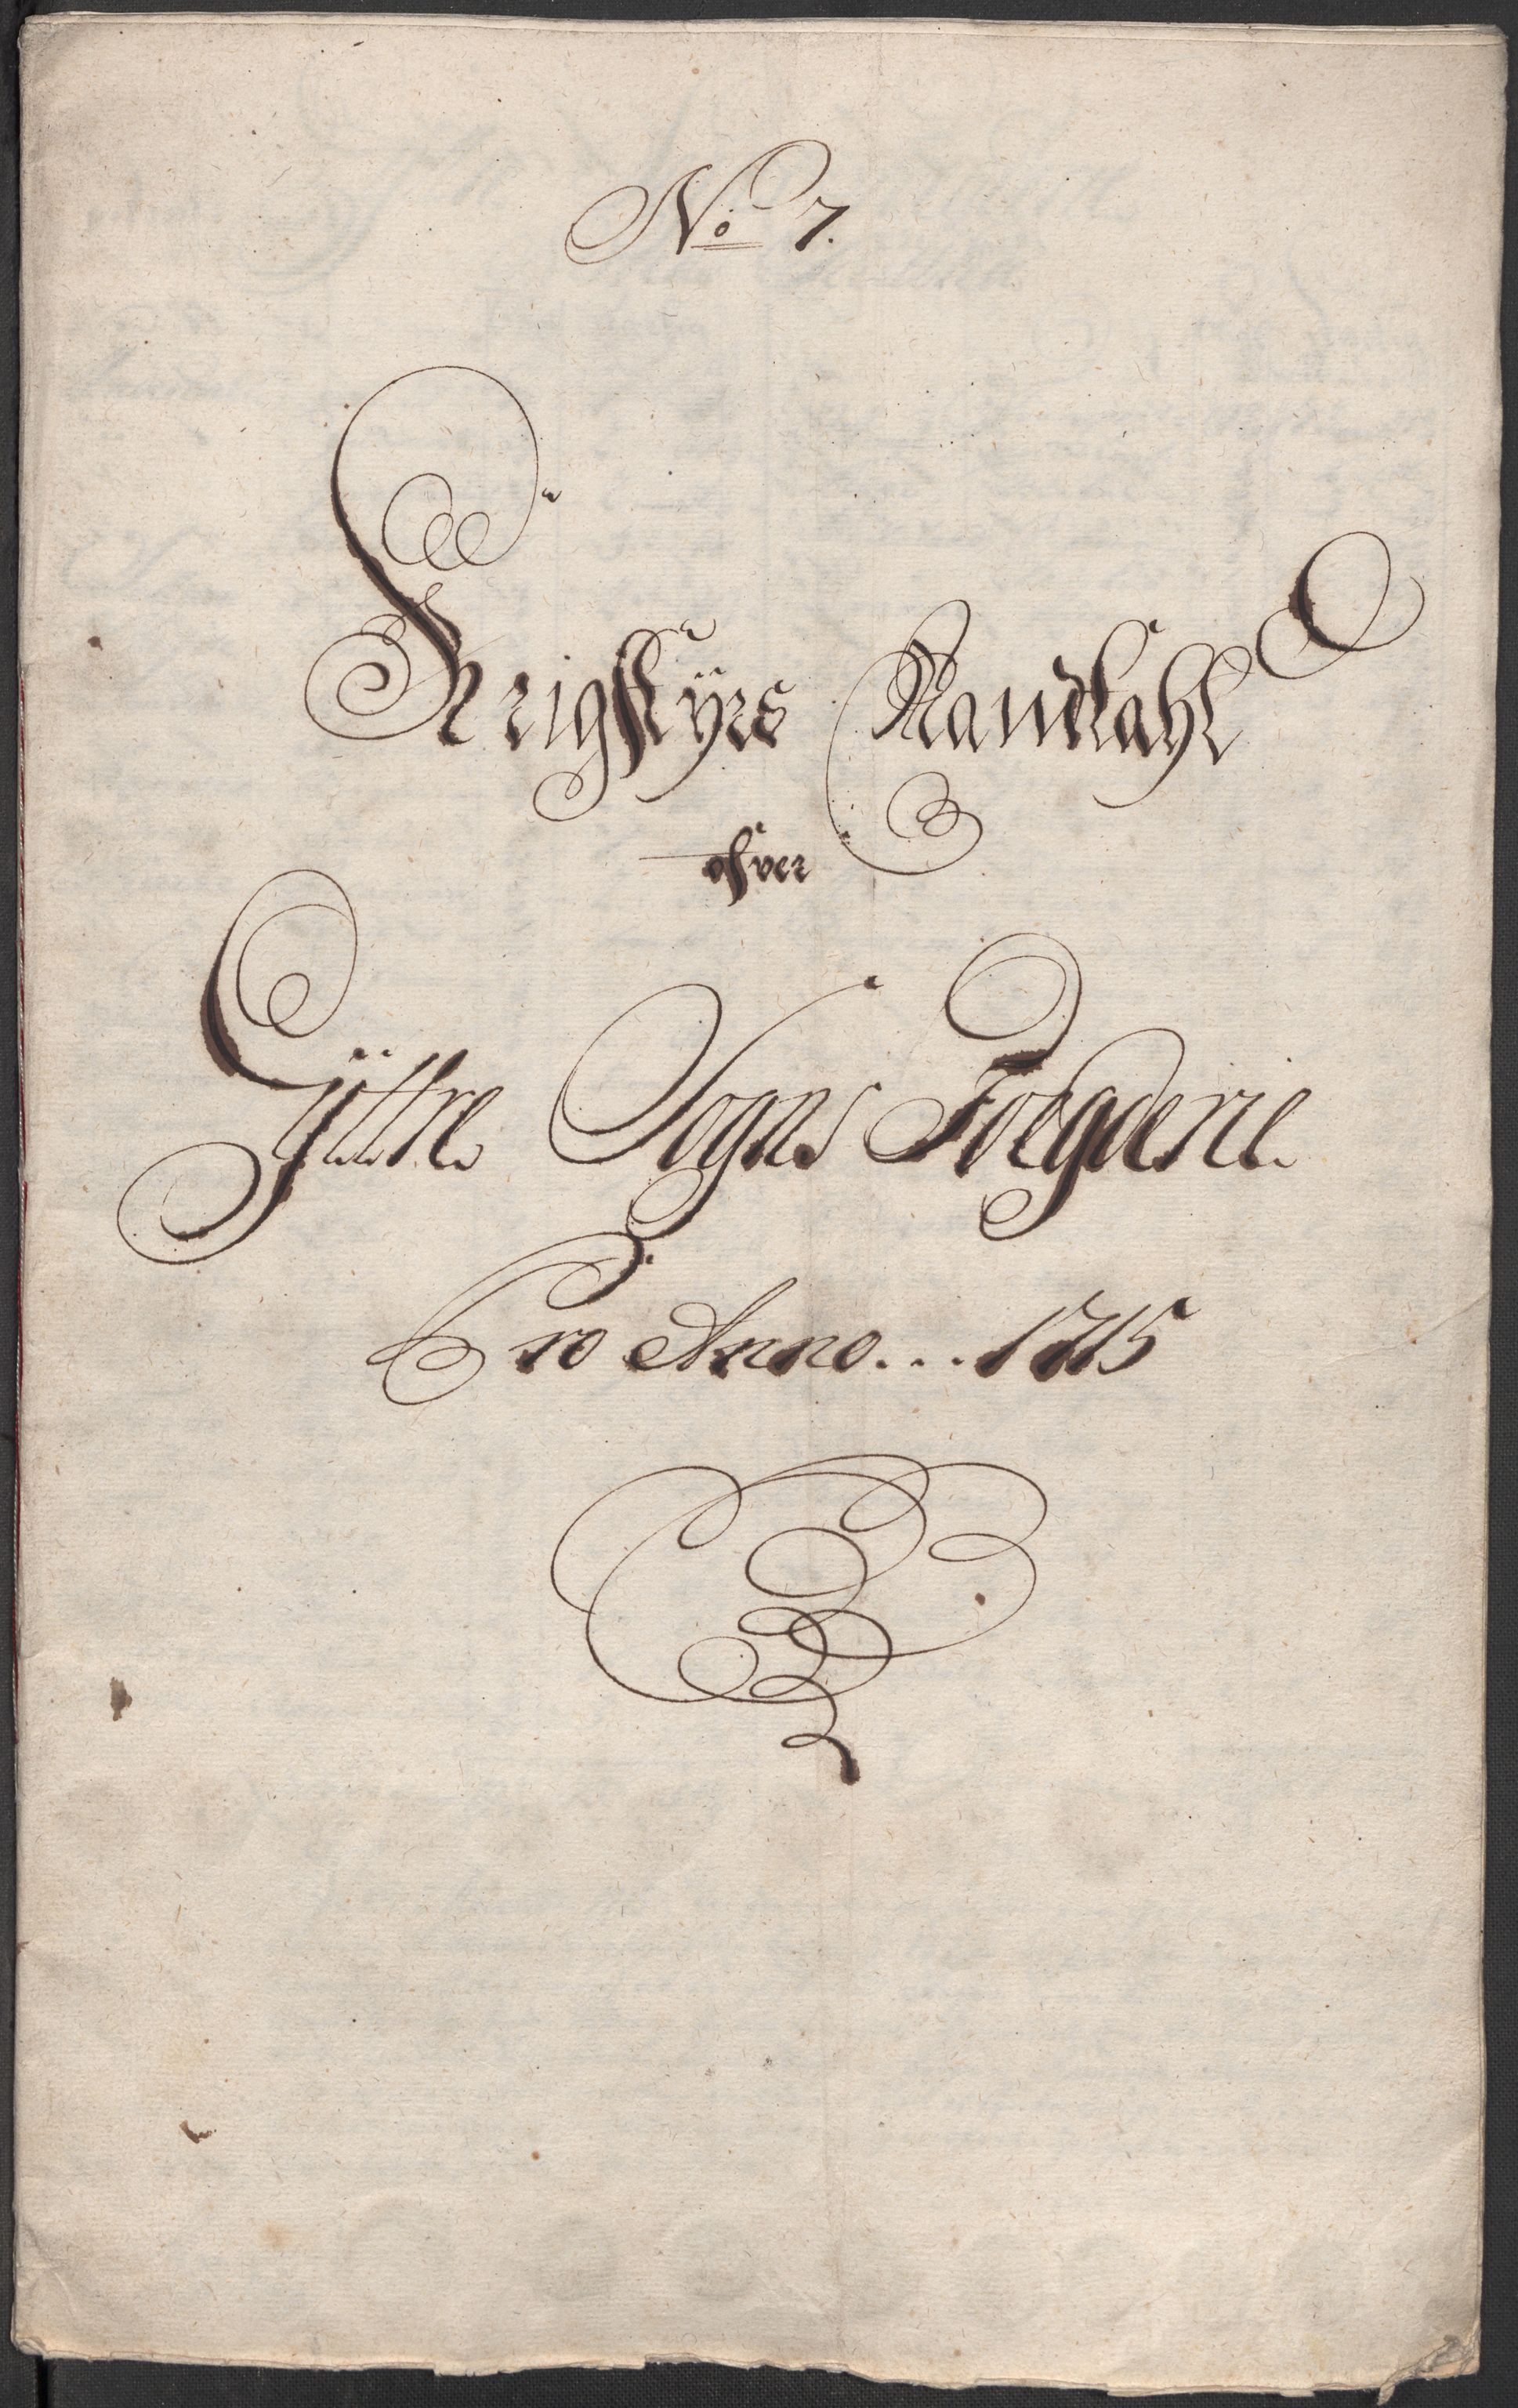 No 7.
Krigstÿrs Mandtahl
ofver
Ÿttre Sogns Foegderie
Pro Anno... 1715